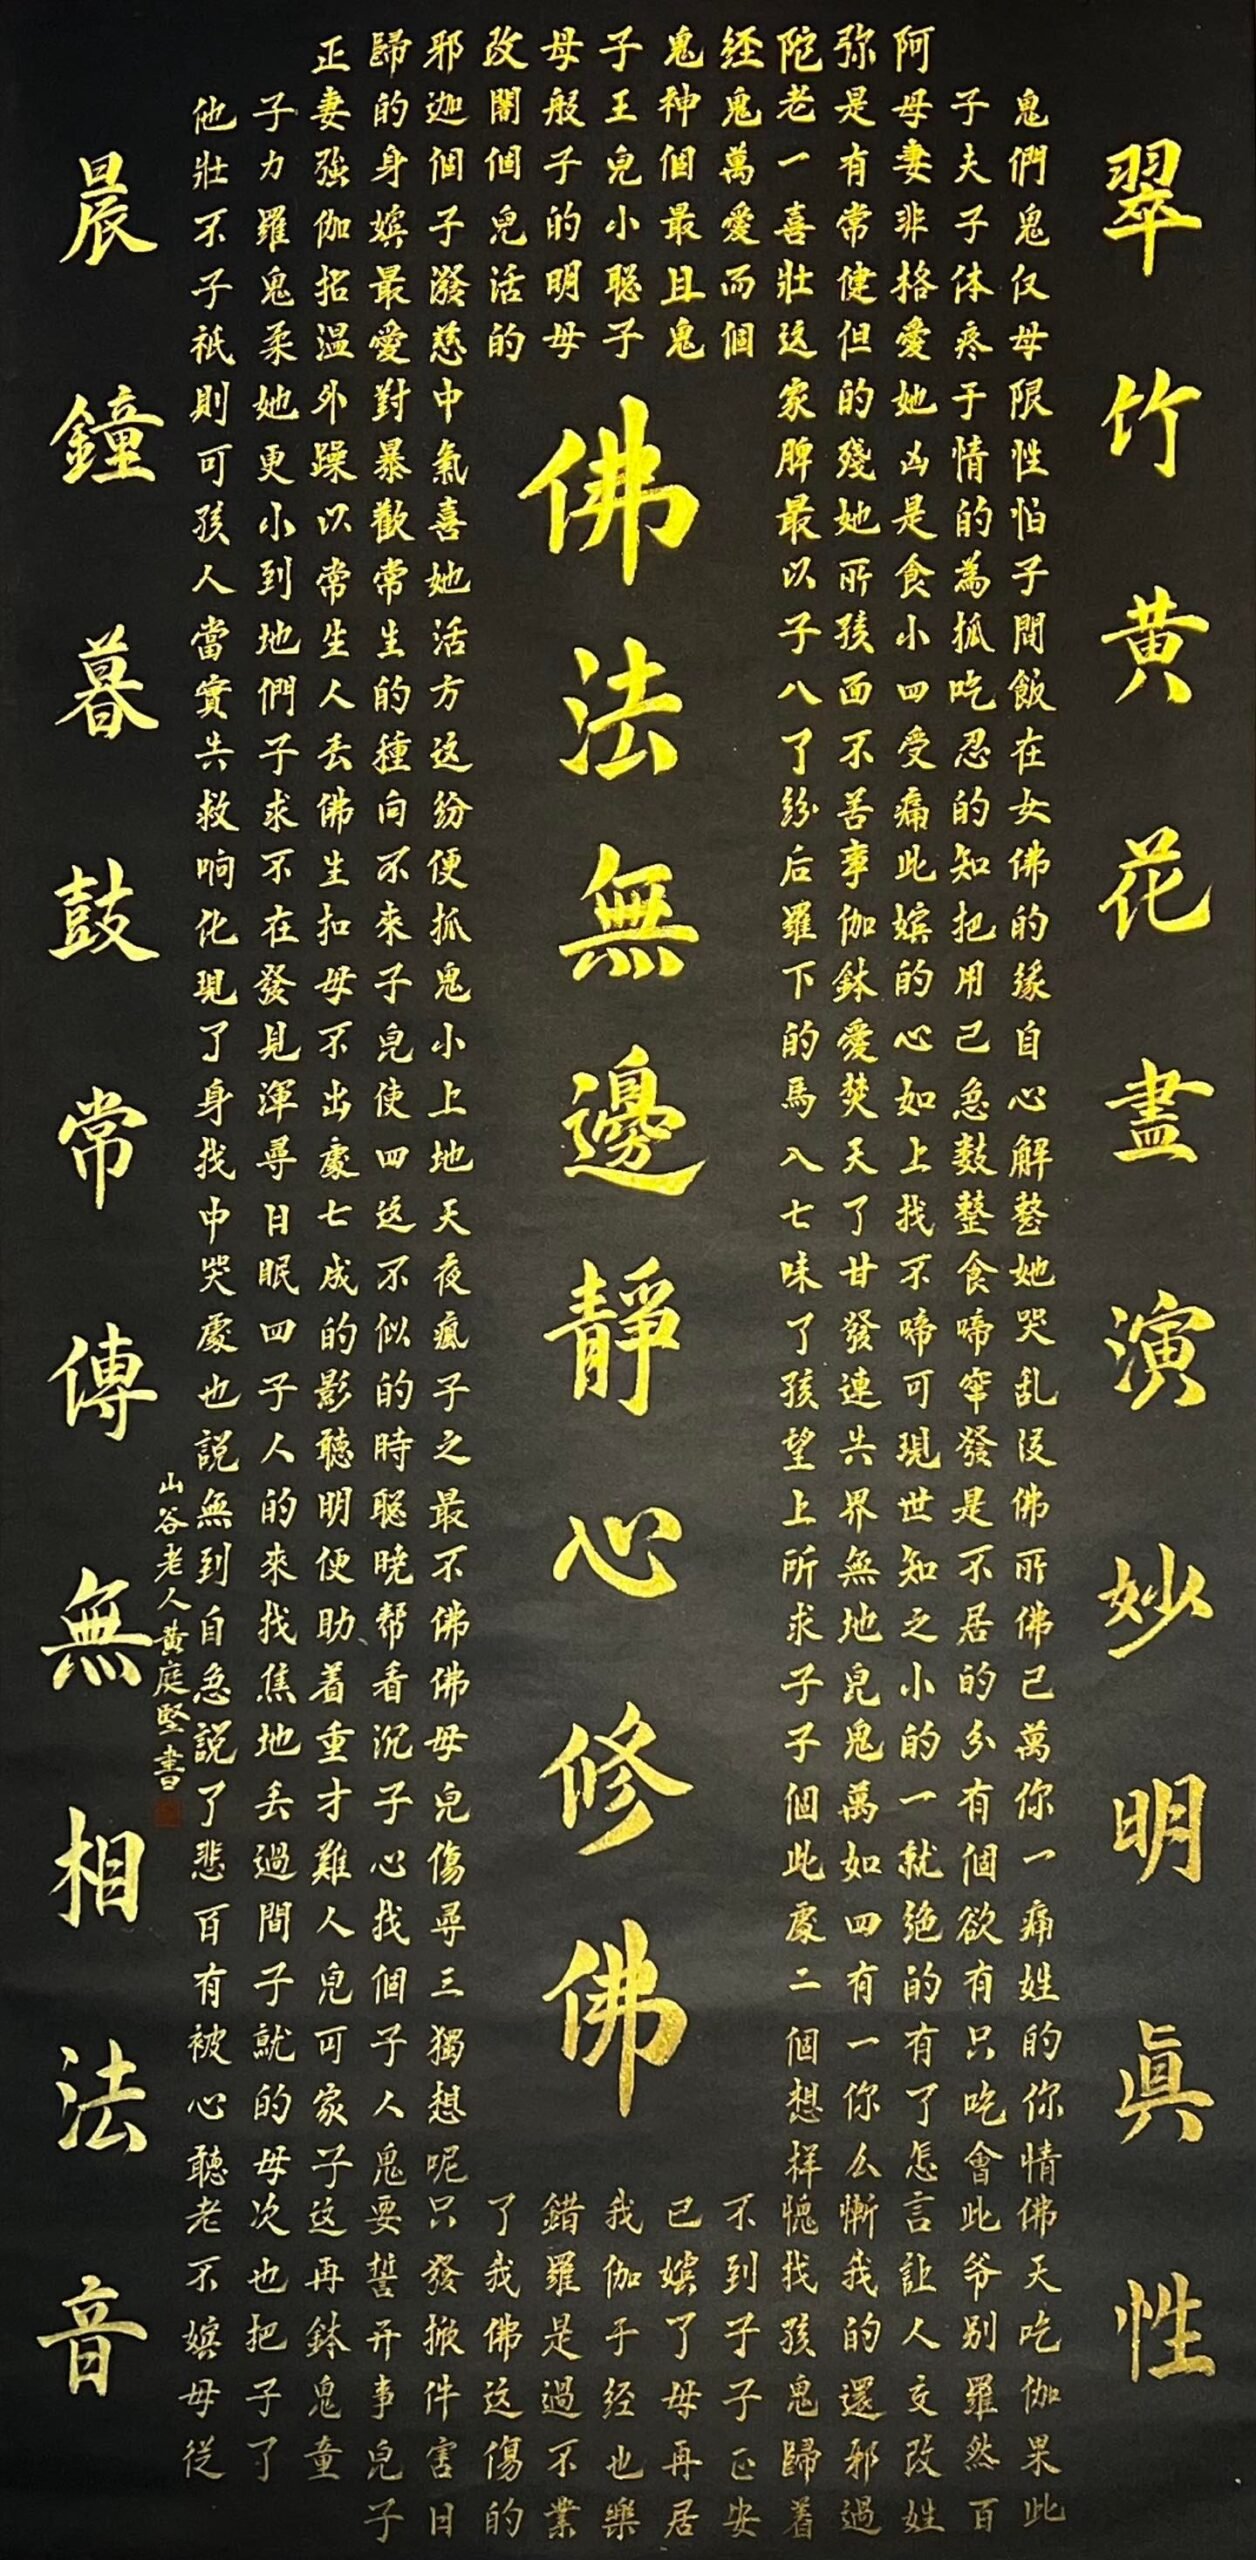 翠竹黄花盡演妙明真性
阿弥陀経鬼子母改邪歸正
鬼子母是老鬼神王般闍迦的妻子他
們夫妻有一萬個兒子個個身強力壯
鬼子非常喜愛最小的兒子嫔伽羅不
仅体格健壯而且聪明活潑最招鬼子
母疼愛但这個鬼子母的慈愛温柔祇
限于她的家中對外她則
性情凶殘脾氣暴躁更可
怕的是她最喜歡以小孩
子為食所以她常常到人
間抓小孩子活生生地當
飯吃四面八方的人們實
在忍受不了这種去子共
女的痛苦紛紛向佛求救
佛知此事后便不生不响
的把嫔伽羅抓來扣在化
缘用的鉢下鬼子母發現
自己心愛的小兒不見了
心急如焚馬上使出渾身
解数上天入地四處尋找
愁整找了七天这七日中
她食不甘味夜不成眠哭
哭啼啼發了瘋似的四處
乱窜可連孩子的影子也
没發現共望之時聽人説
佛是世界上最聪明的無
所不知無所不晓便來到
佛居之地求佛帮助找自
己的小兒子佛看着焦急
萬分的鬼子母沉重地説
你有一萬個兒子才丢了
一個就如此傷心難過悲
痛欲绝四處尋找人間百
姓有的有二三個兒子有
的只有一個獨子可就被
你吃了你想想人家的心
情會怎么样呢鬼子母聽
佛此言慚愧不已我錯了只要这次老
天爷让我找到嫔伽羅我發誓再也不
吃别人的孩子了于是佛掀开鉢把嫔
伽羅交還鬼子母经過这件事鬼子母
果然改邪歸正再也不傷害兒童了從
此百姓過着安居樂業的日子
佛法無邊靜心修佛
山谷老人黄庭堅書
晨鐘暮鼓常傳無相法音